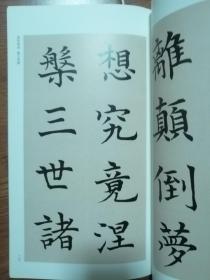 離顛倒夢
想究竟涅
槃三世諸